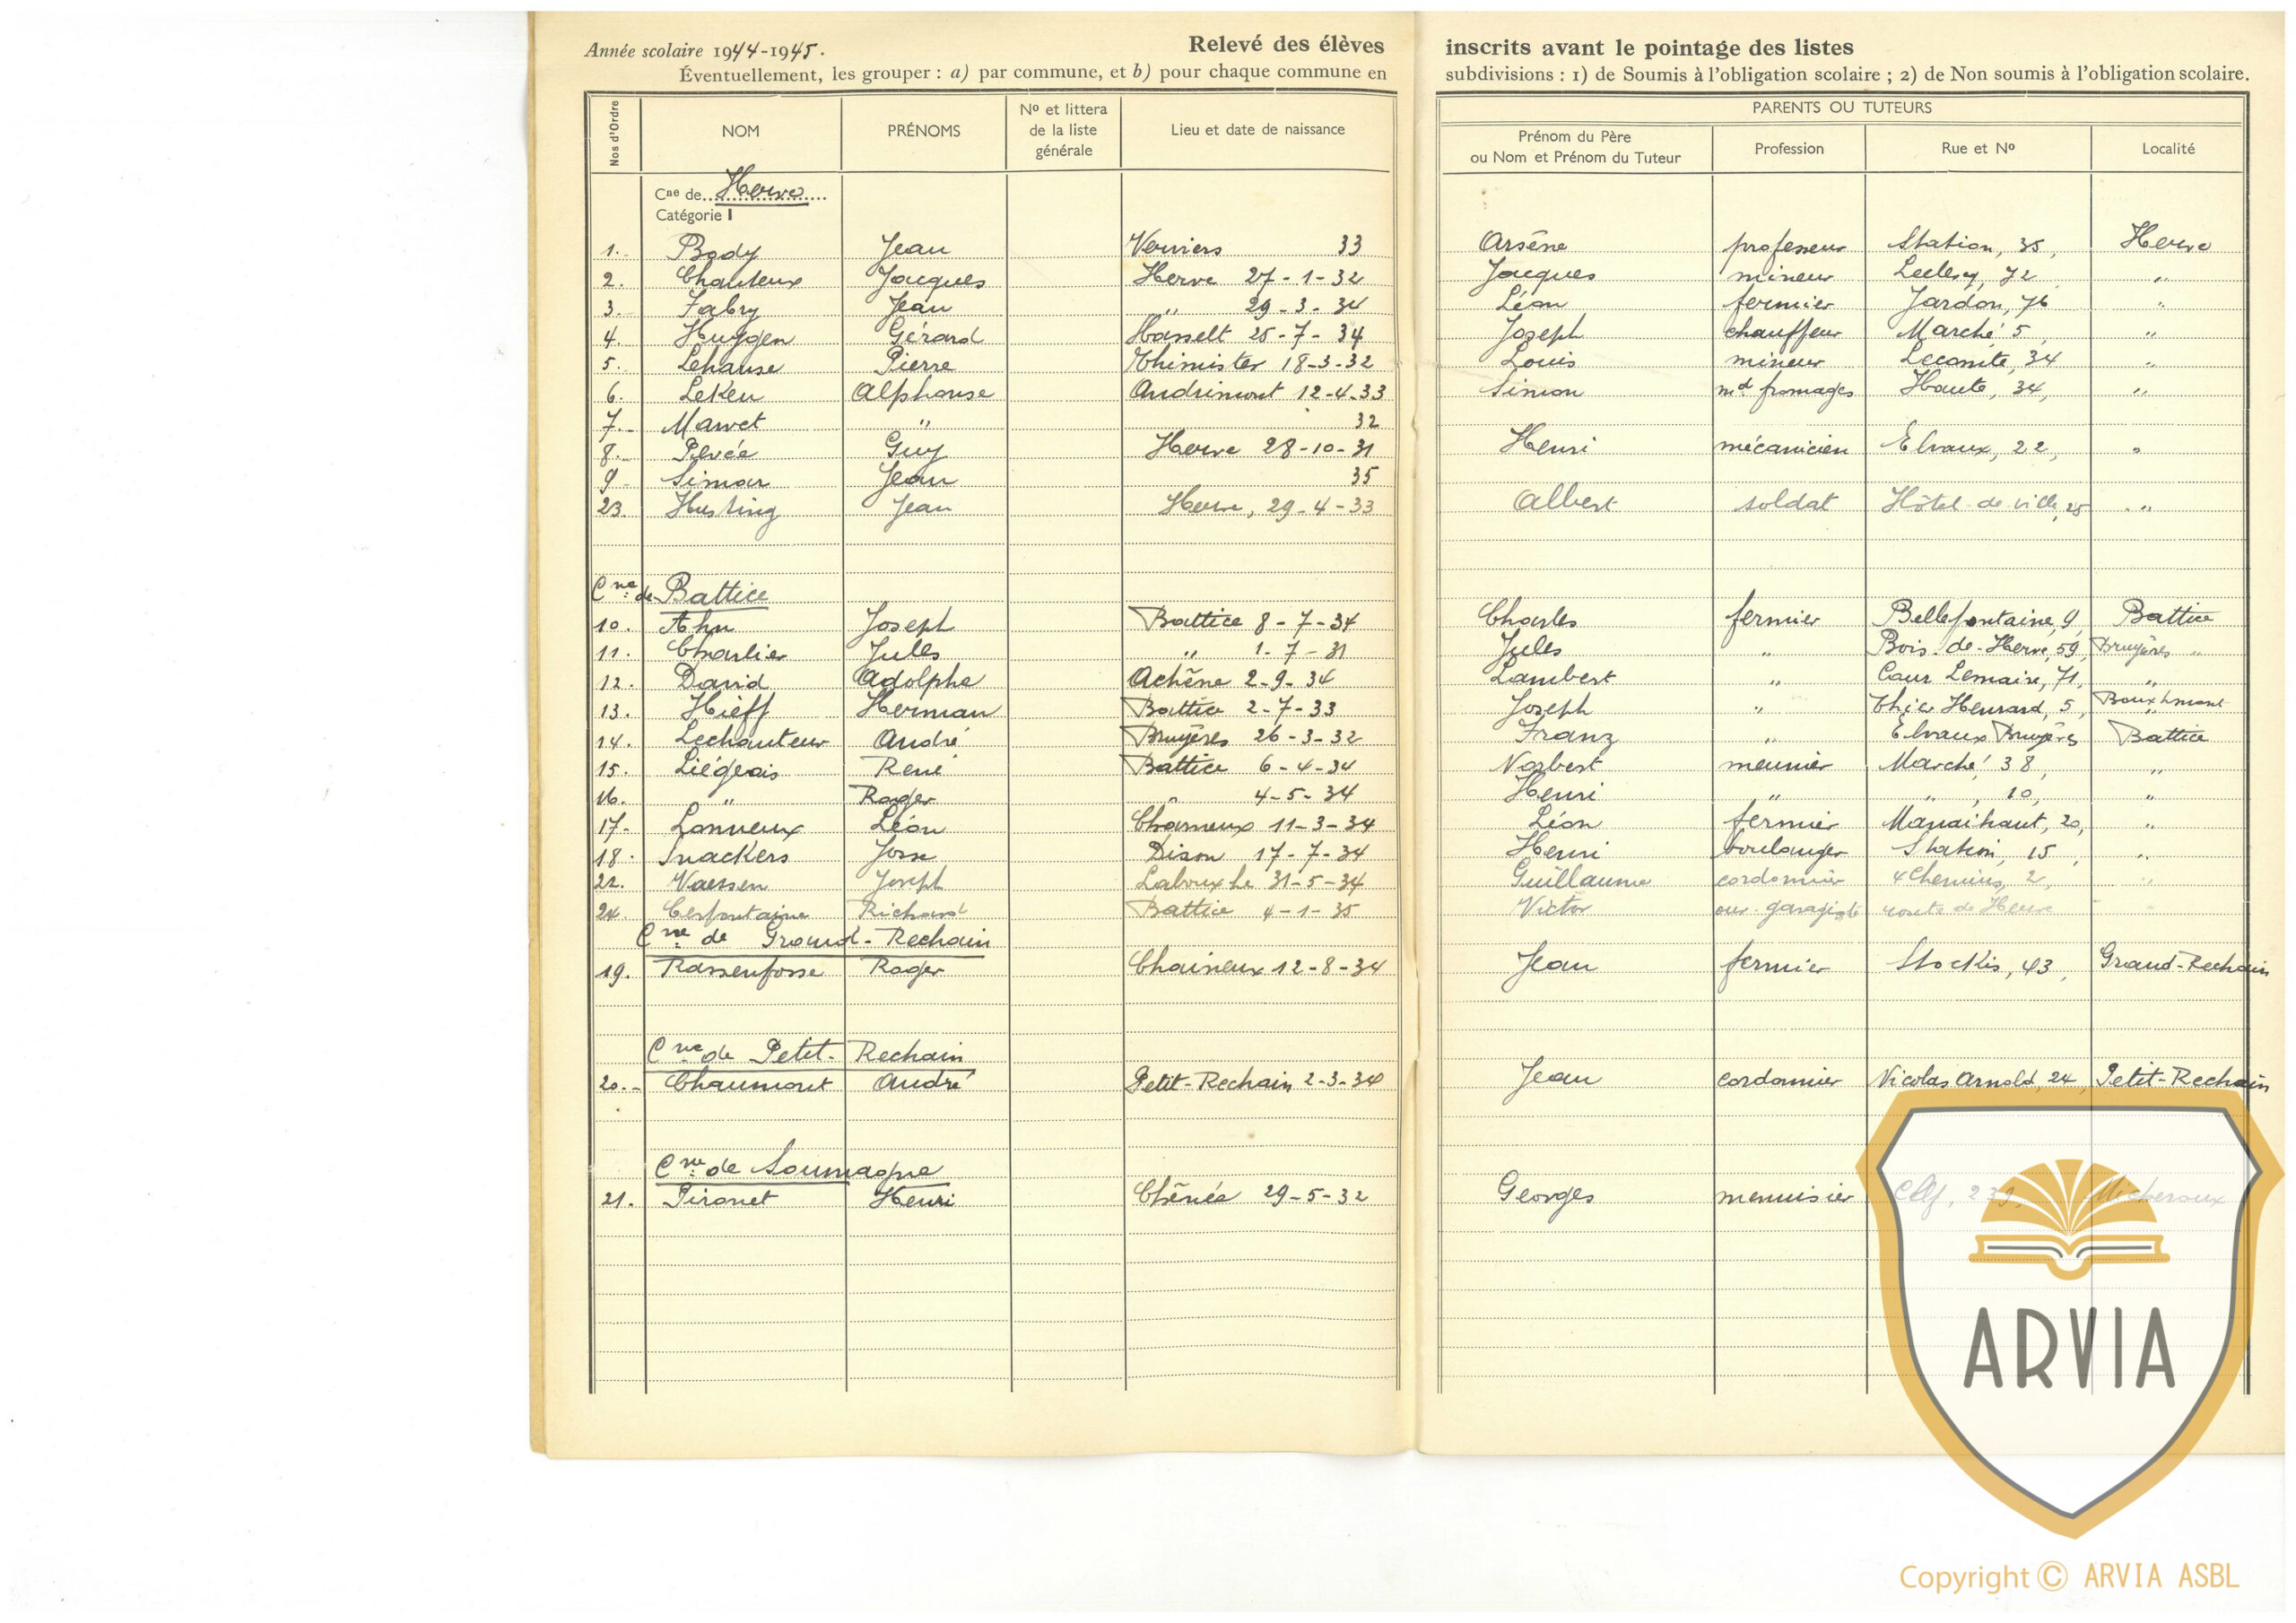 Année scolaire 1944-1945. Relevé des élèves inscrits avant le pointage des listes
Éventuellement, les grouper : a) par commune, et b) pour chaque commune en subdivisions : 1) de Soumis à l'obligation scolaire ; 2) de Non soumis à l'obligation scolaire.
PARENTS OU TUTEURS
Nos d'Ordre NOM PRÉNOMS Nº et littera de la liste générale Lieu et date de naissance Prénom du Père ou Nom et Prénom du Tuteur Profession Rue et Nº Localité
Cne de Herve
Catégorie I
1. Body Jean Verviers 33 Arsène professeur Station, 35, Herve
2. Chanteux Jacques Herve 27-1-32 Jacques mineur Leclercq, 72 "
3. Fabry Jean " 29-3-34 Léon fermier Jardon, 76 "
4. Huygen Gérard Hasselt 25-7-34 Joseph chauffeur Marché 5, "
5. Lehanse Pierre Thimister 18-3-32 Louis mineur Lecomte, 34 "
6. Lekeu Alphonse Andrimont 12-4-33 Simon md fromages Haute, 34, "
7. Mawet " 32
8. Pévée Guy Herve 28-10-31 Henri mécanicien Elvaux, 22, "
9. Simar Jean 35
23. Husting Jean Herve, 29-4-33 Albert soldat Hôtel-de-ville, 25 "
Cne de Battice
10. Ahn Joseph Battice 8-7-34 Charles fermier Bellefontaine, 9, Battice
11. Charlier Jules " 1-7-31 Jules " Bois-de-Herve, 59, Bruyères "
12. David Adolphe Achêne 2-9-34 Lambert " Cour Lemaire, 71, "
13. Hieff Herman Battice 2-7-33 Joseph " Thier Henrard, 5, Bouxhmont
14. Lechanteur André Bruyères 26-3-32 Franz " Elvaux Bruyères Battice
15. Liégeois René Battice 6-4-34 Norbert meunier Marché, 38, "
16. " Roger " 4-5-34 Henri " " , 10, "
17. Lonneux Léon Charneux 11-3-34 Léon fermier Manaihant, 20, "
18. Snackers José Dison 17-7-34 Henri boulanger Station, 15, "
22. Vaessen Joseph Labouxhe 31-5-34 Guillaume cordonnier 4 Chemins, 2, "
24. Cerfontaine Richard Battice 4-1-35 Victor ouv. garagiste route de Herve "
Cne de Grand-Rechain
19. Rassenfosse Roger Chaineux 12-8-34 Jean fermier Stockis, 43, Grand-Rechain
Cne de Petit-Rechain
20. Chaumont André Petit-Rechain 2-3-34 Jean cordonnier Nicolas Arnold, 24, Petit-Rechain
Cne de Soumagne
21. Pironet Henri Chênée 29-5-32 Georges menuisier 239, Micheroux
ARVIA
Copyright © ARVIA ASBL